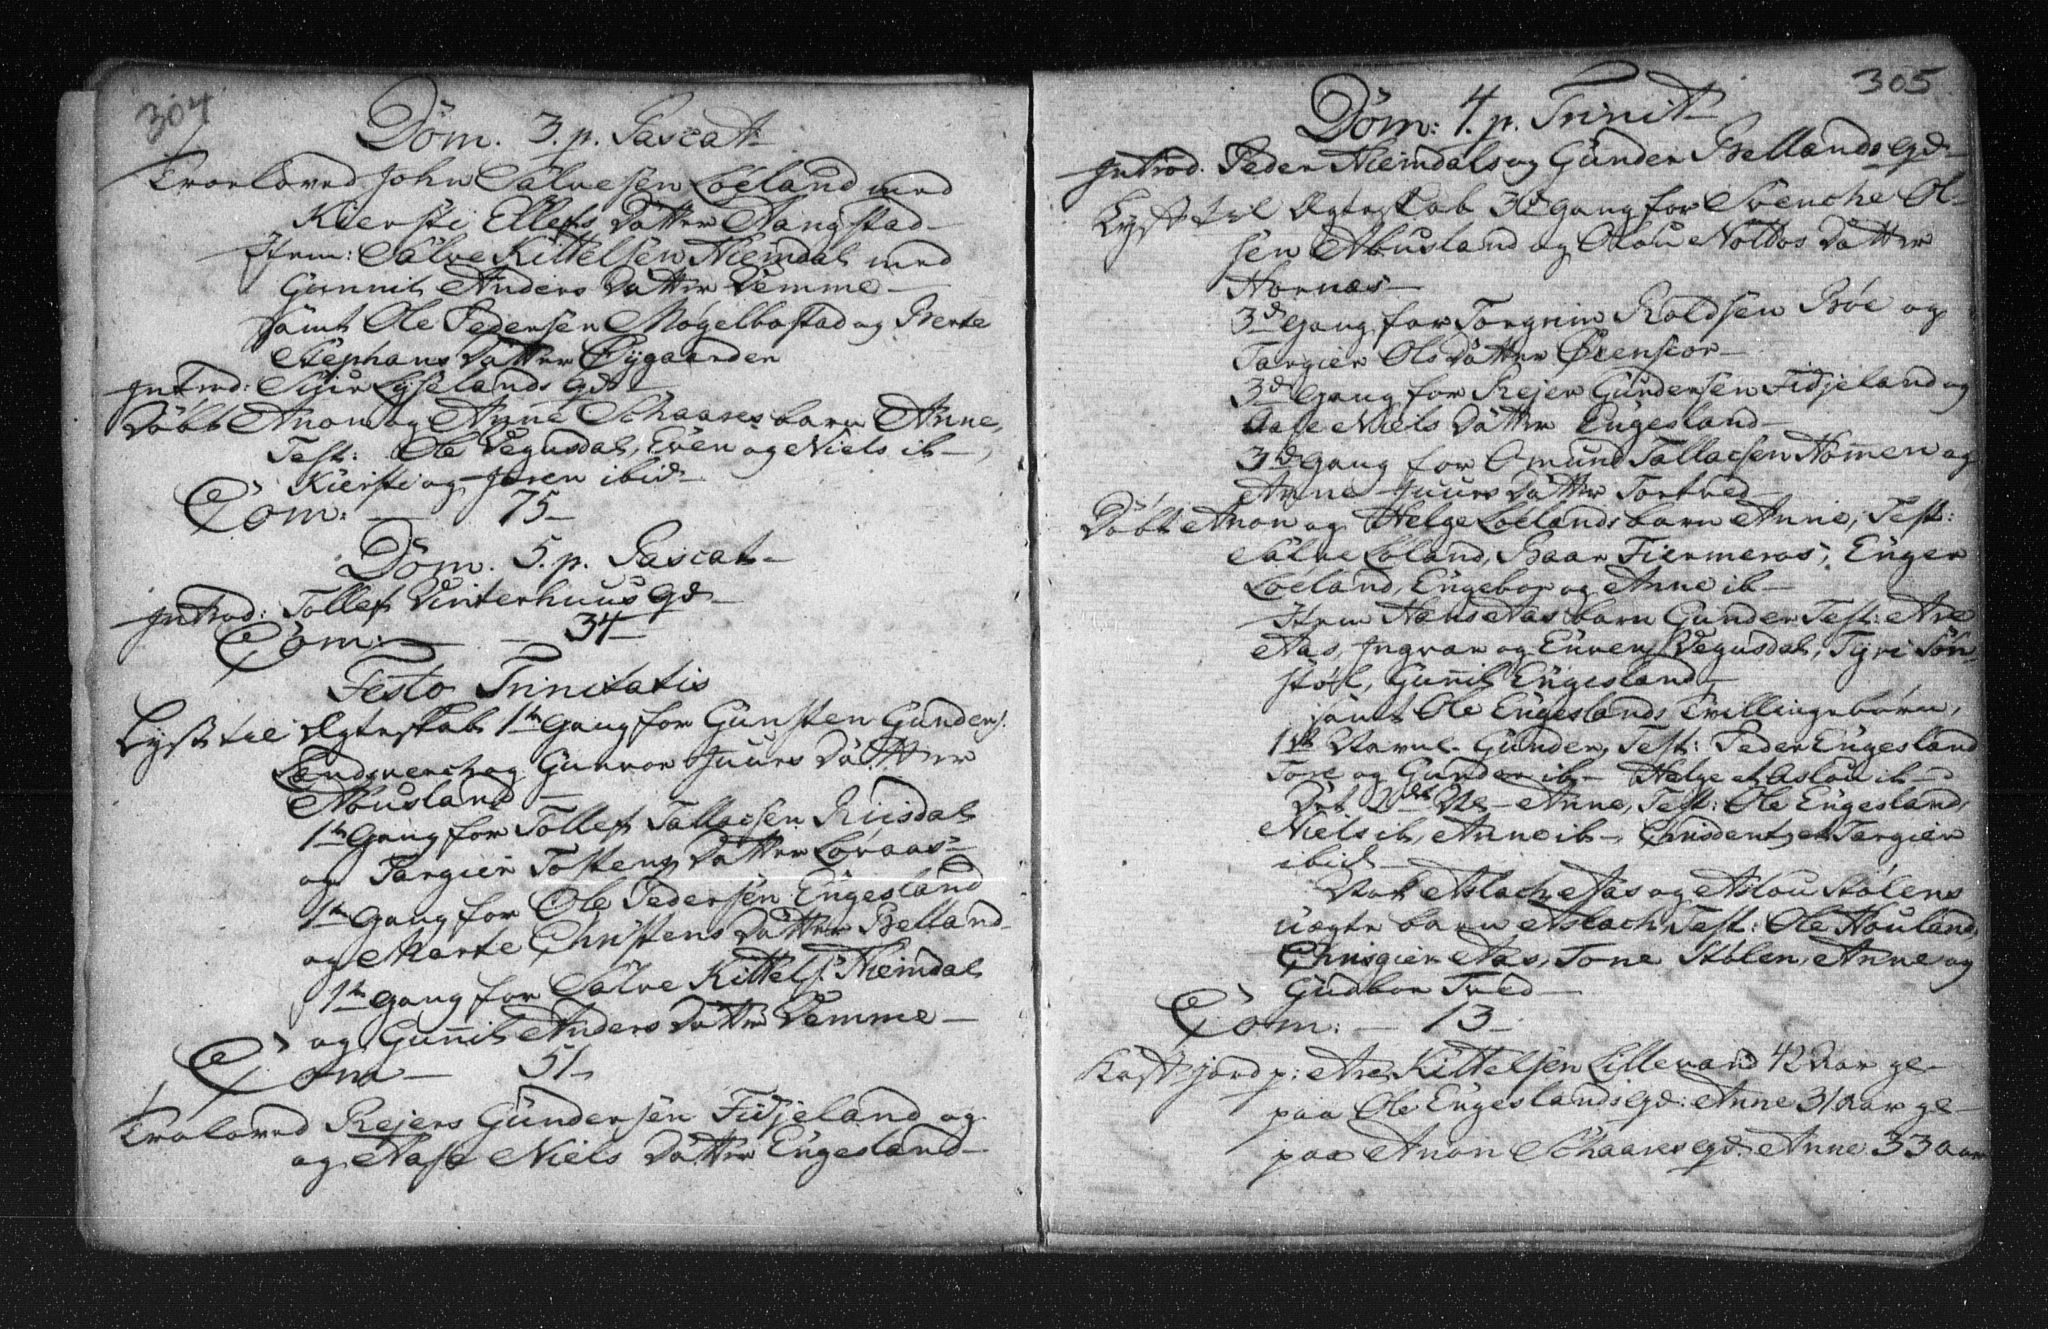 304
Dom. 3. p. Pascat
Troeloved John Salvesen Løeland med
Kiersti Ellefs Datter Aangstad
Item: Salve Kittelsen Hiemdal med
Gunnil Anders Datter Vemme
samt Ole Pedersen Mogelbostad og Berte
Stephans Datter Øygaarden
Introd: Siur Lyselands qd
Døbt Anon og Anne Schaares barn Anne,
Test: Ole Vegusdal, Even og Niels ib,
Kiersti og Joren ibid
Com: 75
Dom. 5. p. Pascat
Introd: Tollef Vinterhuus qd
Com: 34
Festo Trinitatis
Lyst til Ægteskab 1te Gang for Gunsten Gunders:
Landsverch og Gunvor Juurs Datter
Abusland
1te Gang for Tollef Tallacsen Riisdal
og Targier Tostens Datter Løvaas
1te Gang for Ole Pedersen Engesland
og Marte Christens Datter Belland
1te Gang for Salve Kittels: Hiemdal
og Gunnil Anders Datter Vemme
Com 51
Troloved Rejers Gundersen Fidjeland og
og Aase Niels Datter Engesland
305
Dom: 4. p. Trinit
Introd. Peder Hiemdals og Gunder Bellands qd
Lyst til Ægteskab 3de gang for Svenche Ol-
sen Abusland og Olau Noldos Datter
Hornæs
3de Gang for Torgrim Roldsen Bøe og
Targier Ols Datter
3de Gang for Rejer Gundersen Fidjeland og
Aase Niels Datter Engesland
3de Gang for Omund Tallacsen Hommen og
Anne Juurs Datter Tortved
Døbt Anon og Helge Løelands barn Anne, Test:
Salve Løland, Baar Fiermeros, Enger
Løeland, Engebor og Anne ib
Item Hans Aas barn Gunder Test: Are
Aas, Ingvar og Even Vegusdal, Tyri Søn-
støl, Gunnil Engesland
samt Ole Engeslands Tvillingebørn,
1te Navnl. Gunder, Test: Peder Engesland
Tore og Gunder ib Helge et Aslou ib
Det 2det No Anne, Test: Ole Engesland,
Niels ib, Anne ib, et Targier
ibid
Nok Aslach Aas og Aslou Stølens
uægte barn Aslach, Test: Ole Houland,
Aas, Tone Stølen, Anne og
Gudbor Tved
Com: 13
Kast: jord p: Are Kittelsen Lillevand 42 Aar ge-
paa Ole Engeslands qd: Anne 31 Aar ge-
paa Anon Schaares qd: Anne 33 aar